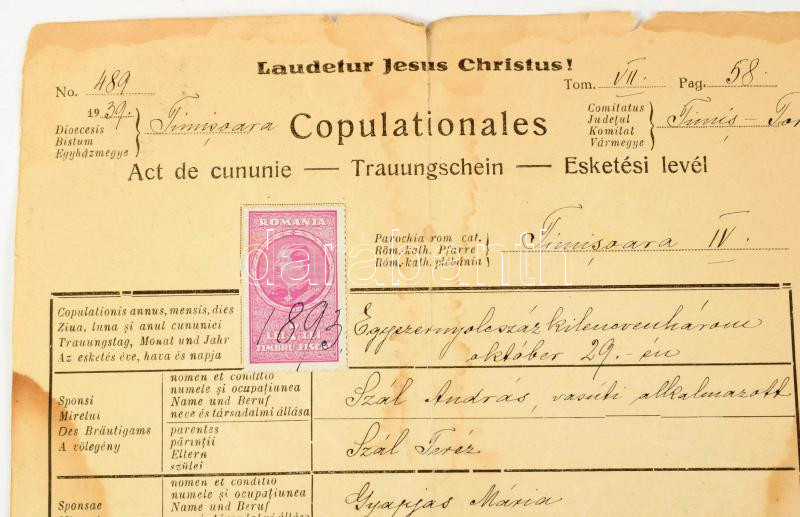 Laudetur Jesus Christus!
No. 489
Tom. VII. Pag. 58.
1939.
Dioecesis
Bistum
Egyházmegye
Timișoara
Copulationales
Comitatus
Județul
Komitat
Vármegye
Timiș-Tor
Act de cununie — Trauungschein — Esketési levél
ROMANIA
1893
LEI LEI
TIMBRU FISCAL
Parochia rom. cat.
Röm.-kath. Pfarre
Róm.-kath. plébánia
Timișoara IV.
darabanth
Copulationis annus, mensis, dies
Ziua, luna și anul cununiei
Trauungstag, Monat und Jahr
Az esketés éve, hava és napja
Egyezernyolcszázkilencvenhárom
október 29.-én
Sponsi
Mirelui
Des Bräutigams
A vőlegény
nomen et conditio
numele și ocupațiunea
Name und Beruf
neve és társadalmi állása
Szál András, vasúti alkalmazott
parentes
părinții
Eltern
szülei
Szál Teréz
Sponsae
nomen et conditio
numele și ocupațiunea
Name und Beruf
Gyapjas Mária